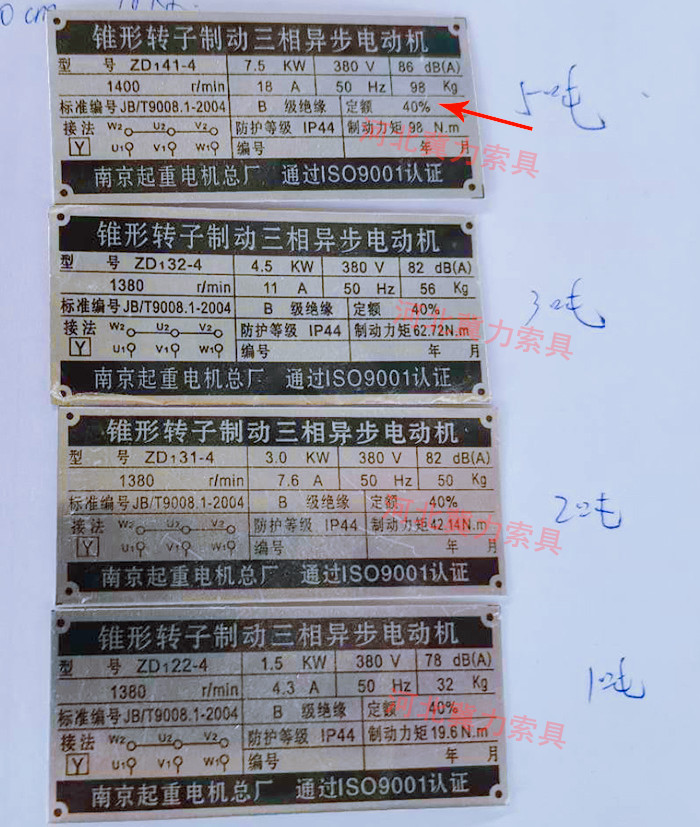 0 cm
锥形转子制动三相异步电动机
型 号 ZD₁41-4 7.5 KW 380 V 86 dB(A)
1400 r/min 18 A 50 Hz 98 Kg
标准编号JB/T9008.1-2004 B 级绝缘 定额 40%
接法 W2 U2 V2 防护等级 IP44 制动力矩 98 N.m
Y U1 V1 W1 编号 年 月
南京起重电机总厂 通过ISO9001认证
5吨
河北冀力索具
锥形转子制动三相异步电动机
型 号 ZD₁32-4 4.5 KW 380 V 82 dB(A)
1380 r/min 11 A 50 Hz 56 Kg
标准编号JB/T9008.1-2004 B 级绝缘 定额 40%
接法 W2 U2 V2 防护等级 IP44 制动力矩62.72N.m
Y U1 V1 W1 编号 年 月
南京起重电机总厂 通过ISO9001认证
3吨
河北冀力索具
锥形转子制动三相异步电动机
型 号 ZD₁31-4 3.0 KW 380 V 82 dB(A)
1380 r/min 7.6 A 50 Hz 50 Kg
标准编号JB/T9008.1-2004 B 级绝缘 定额 40%
接法 W2 U2 V2 防护等级 IP44 制动力矩42.14N.m
Y U1 V1 W1 编号 年 月
南京起重电机总厂 通过ISO9001认证
2吨
河北冀力索具
锥形转子制动三相异步电动机
型 号 ZD₁22-4 1.5 KW 380 V 78 dB(A)
1380 r/min 4.3 A 50 Hz 32 Kg
标准编号JB/T9008.1-2004 B 级绝缘 定额 40%
接法 W2 U2 V2 防护等级 IP44 制动力矩19.6N.m
Y U1 V1 W1 编号 年 月
南京起重电机总厂 通过ISO9001认证
1吨
河北冀力索具